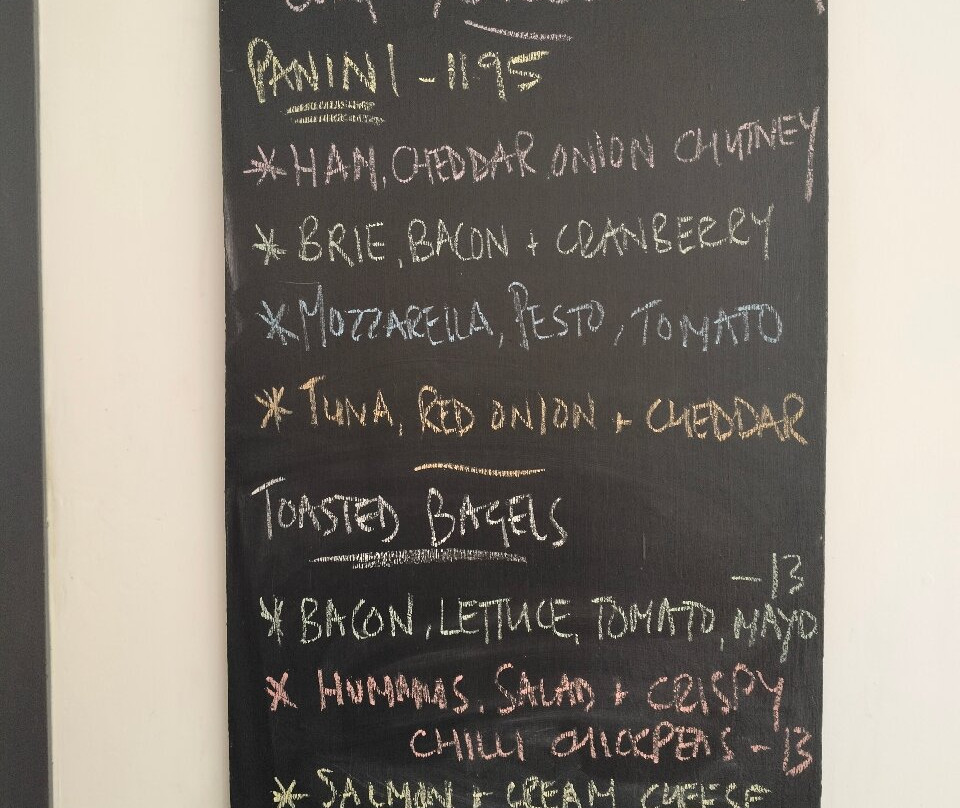 PANINI - 1195
* HAM, CHEDDAR, ONION CHUTNEY
* BRIE, BACON + CRANBERRY
* MOZZARELLA, PESTO, TOMATO
* TUNA, RED ONION + CHEDDAR
TOASTED BAGELS
- 13
* BACON, LETTUCE, TOMATO, MAYO
* HUMMUS, SALAD + CRISPY
CHILLI CHICKPEAS - 13
* SALMON + CREAM CHEESE